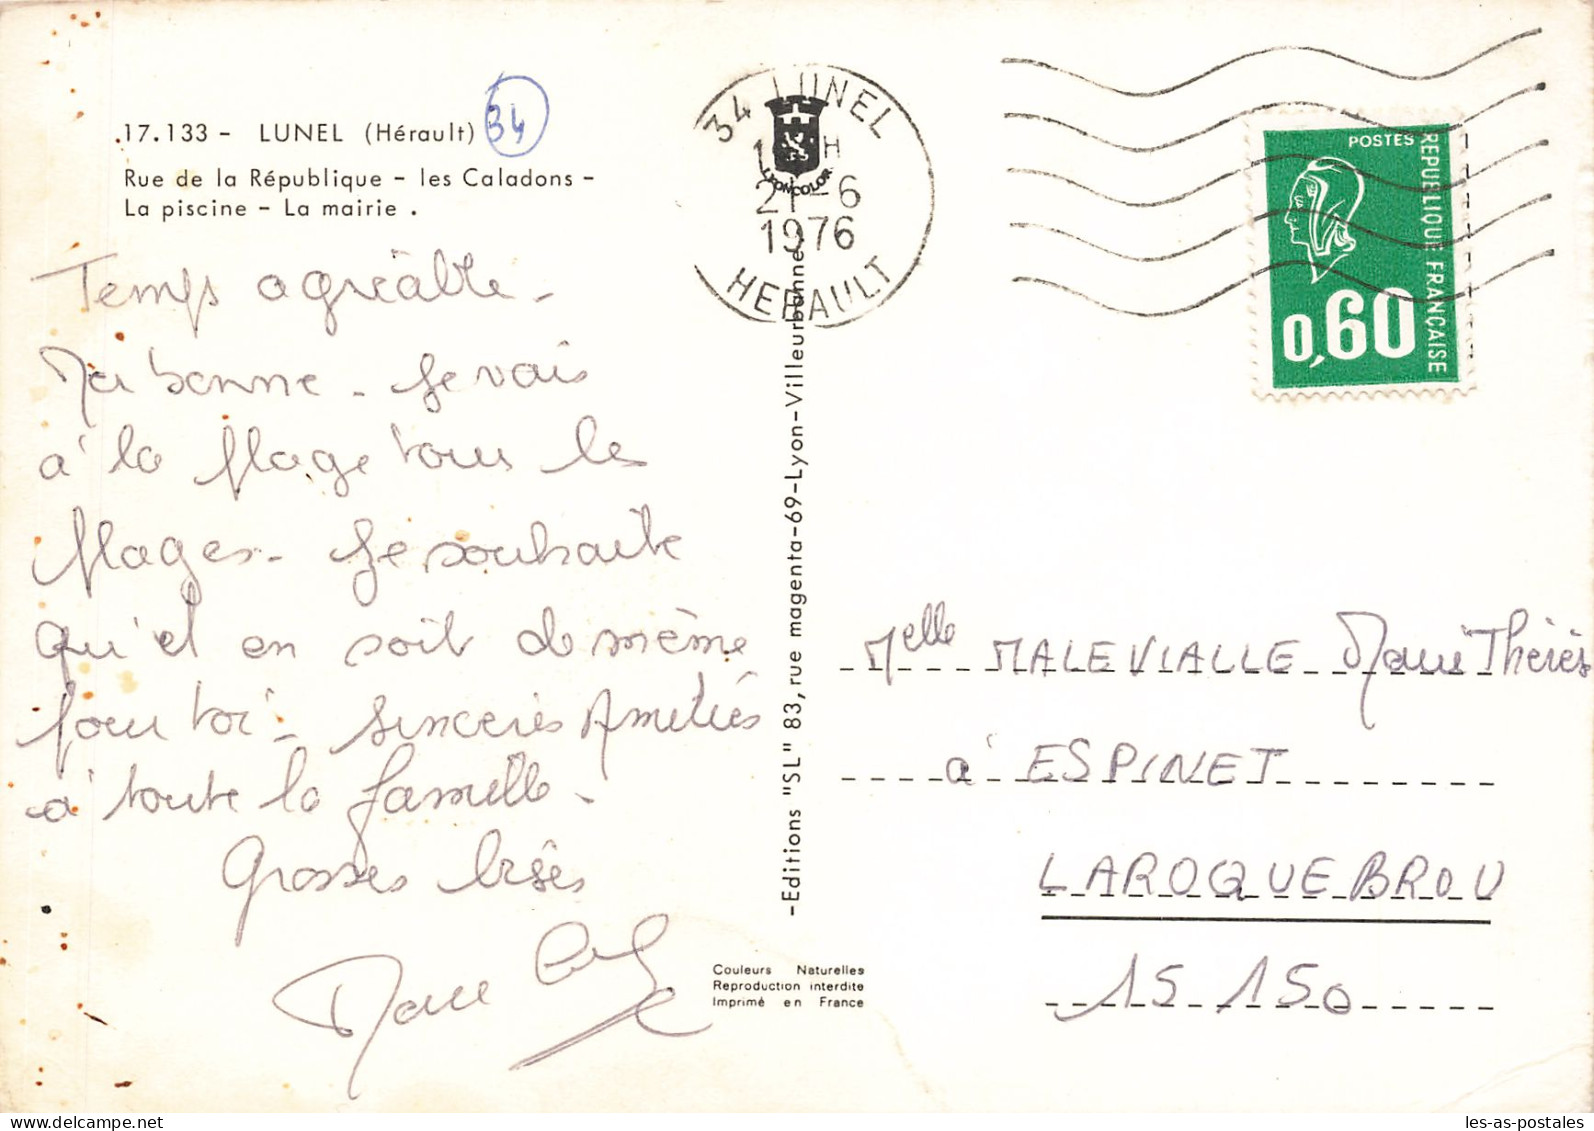 17.133 - LUNEL (Hérault) 34
Rue de la République - les Caladons -
La piscine - La mairie .
Temps agréable -
Ma bonne - Je vais
à la plage tous les
plages - Je souhaite
qu'il en soit de même
pour toi - Sincères Amitiés
à toute la famille -
Grosses bises
34 LUNEL
21-6
1976
HERAULT
LYONCOLOR
POSTES
REPUBLIQUE FRANÇAISE
0,60
-Editions "SL" 83, rue magenta-69-Lyon-Villeurbanne-
Couleurs Naturelles
Reproduction interdite
Imprimé en France
Melle MALEVIALLE Marie Thérès
à ESPINET
LAROQUEBROU
15 150
les-as-postales